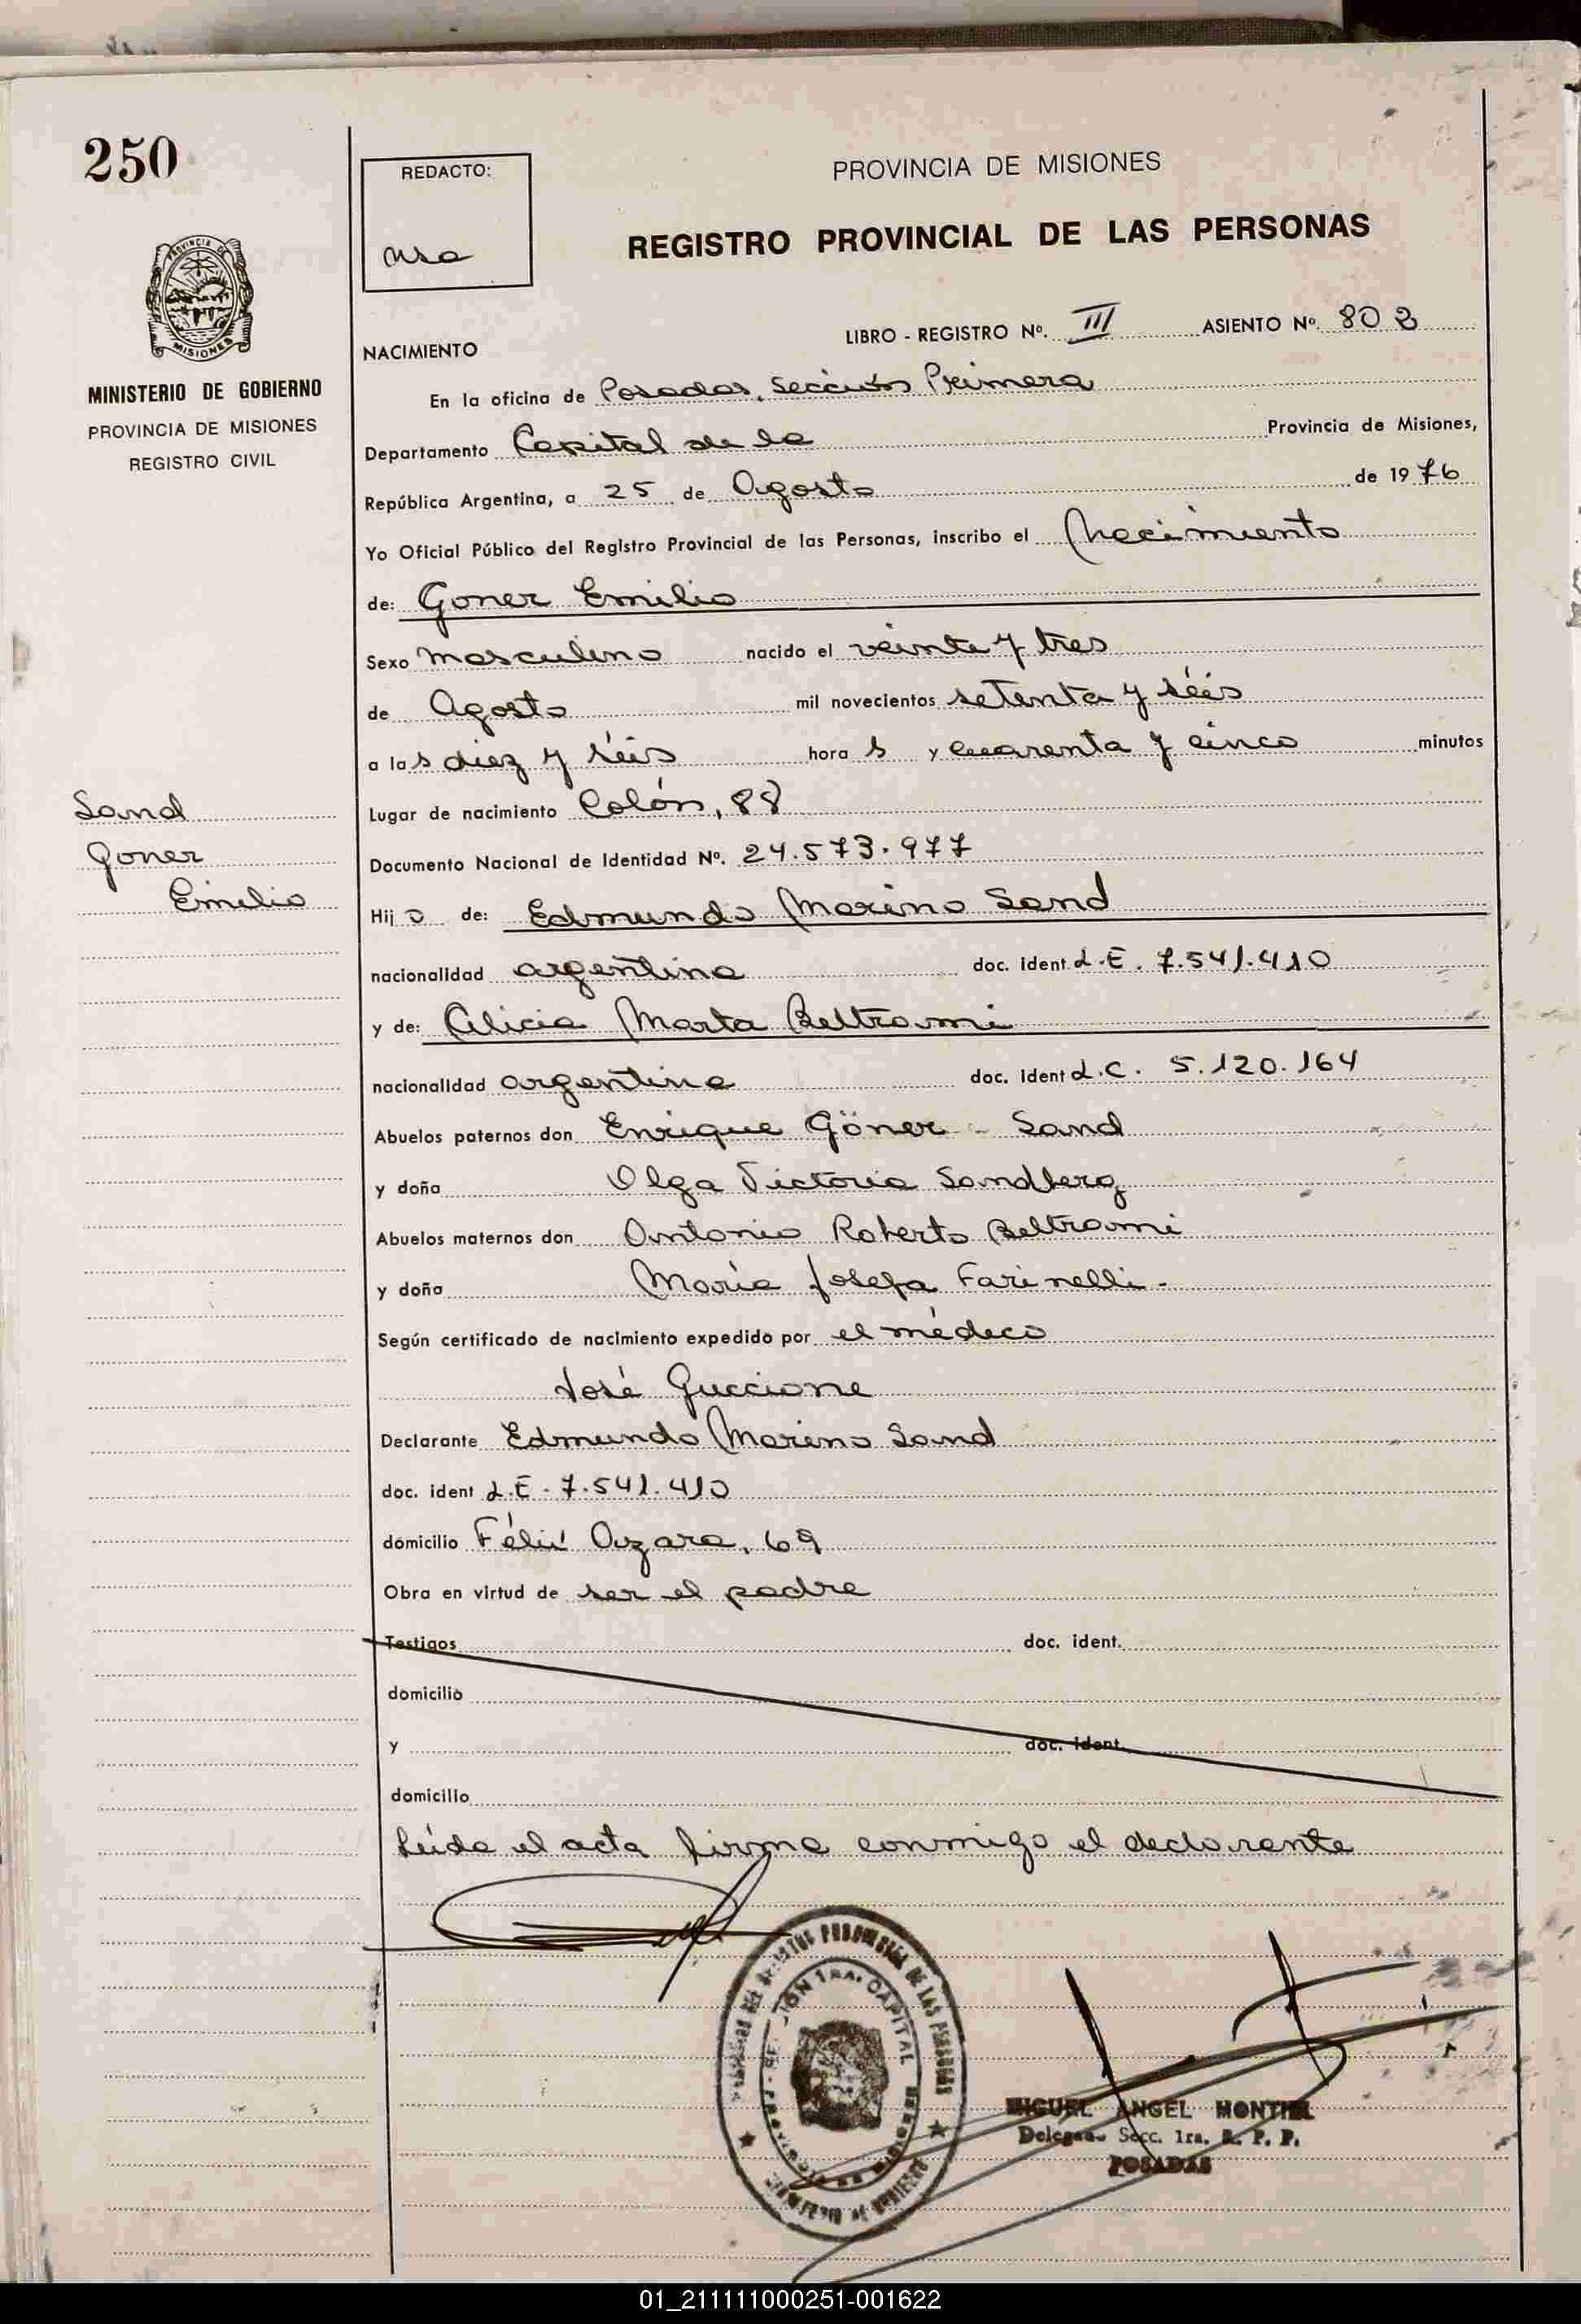 250
REDACTO:
PROVINCIA DE MISIONES
REGISTRO PROVINCIAL DE LAS PERSONAS
PROVINCIA DE
MISIONES
MINISTERIO DE GOBIERNO
PROVINCIA DE MISIONES
REGISTRO CIVIL
LIBRO - REGISTRO Nº. III ASIENTO Nº. 803
NACIMIENTO
En la oficina de Posadas, sección Primera
Departamento Capital de la Provincia de Misiones,
República Argentina, a 25 de Agosto de 1976
Yo Oficial Público del Registro Provincial de las Personas, inscribo el Nacimiento
de: Goner Emilio
Sexo masculino nacido el veinte y tres
de Agosto mil novecientos setenta y séis
a las diez y séis hora s y cuarenta y cinco minutos
Sand
Goner
Emilio
Lugar de nacimiento Colón, 88
Documento Nacional de Identidad Nº. 24.573.977
Hijo de: Edmundo Marino Sand
nacionalidad argentina doc. ident L.E. 7.541.410
y de: Alicia Marta Beltrami
nacionalidad argentina doc. ident L.C. 5.120.164
Abuelos paternos don Enrique Göner - Sand
y doña Olga Victoria Sandberg
Abuelos maternos don Antonio Roberto Beltrami
y doña María Josefa Farinelli -
Según certificado de nacimiento expedido por el médico
José Guccione
Declarante Edmundo Marino Sand
doc. ident L.E. 7.541.410
domicilio Félix Azara, 69
Obra en virtud de ser el padre
Testigos doc. ident.
domicilio
y doc. ident.
domicilio
Leída el acta firma conmigo el declarante
MIGUEL ANGEL MONTIEL
Delegado Secc. 1ra. R. P. P.
POSADAS
01_211111000251-001622